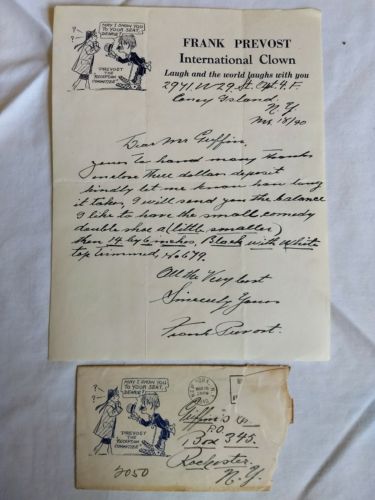 MAY I SHOW YOU
TO YOUR SEAT,
DEARIE?
? ?
PREVOST
THE
"RECEPTION
COMMITTEE"
FRANK PREVOST
International Clown
Laugh and the world laughs with you
2941. W 29. St. Apt. 4. F.
Coney Island.
N. Y
18/40
Dear Mr Griffin.
yours to hand many thanks
enclose three dollar deposit
kindly let me know how long
it takes, I will send you the balance
I like to have the small comedy
double shoe a (little smaller)
then 14 by 6 inches, Black with White
top trimmed, No 679.
All the Very best
Sincerely Yours
Frank Prevost.
MAY I SHOW YOU
TO YOUR SEAT,
DEARIE?
? ?
PREVOST
THE
"RECEPTION
COMMITTEE"
NEW YORK, N.Y.
Griffin's
P.O.
Box 345.
Rochester.
N. Y.
2050